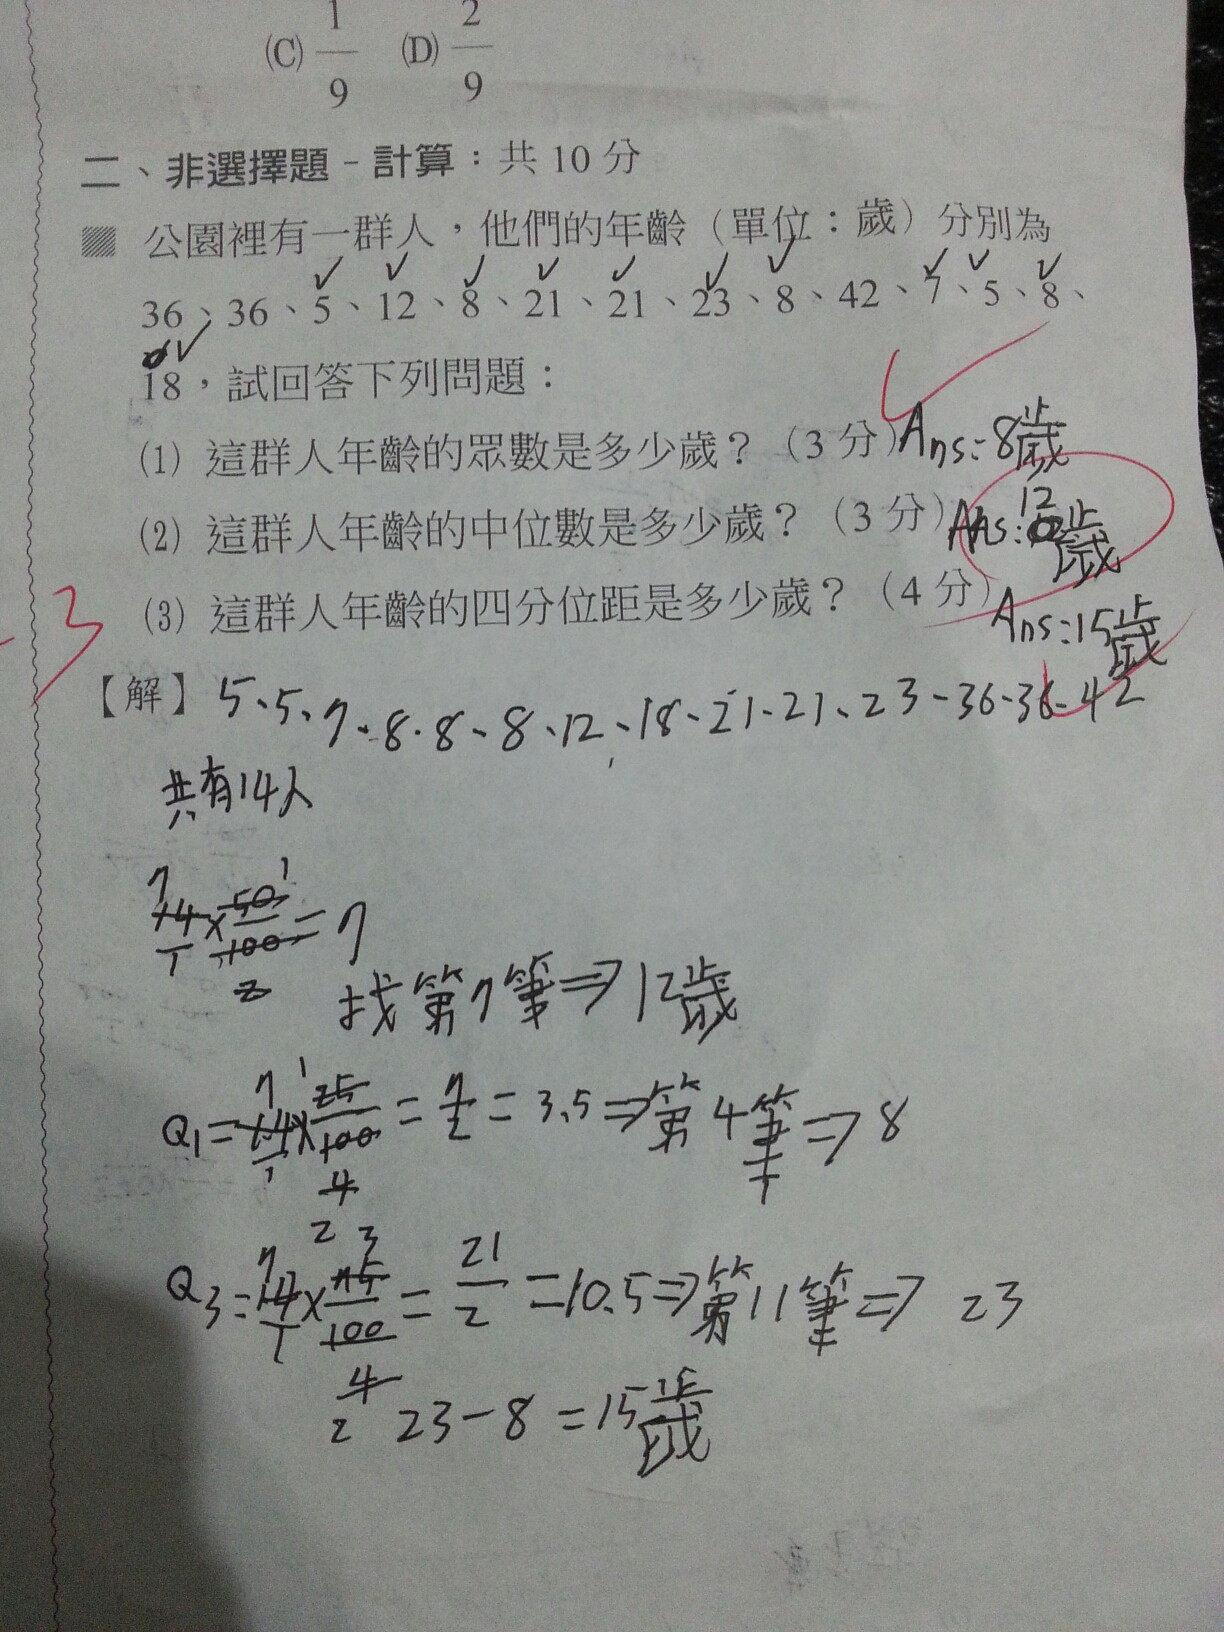 (C) 1/9 (D) 2/9
二、非選擇題－計算：共 10 分
公園裡有一群人，他們的年齡（單位：歲）分別為
36、36、5、12、8、21、21、23、8、42、7、5、8、
18，試回答下列問題：
(1) 這群人年齡的眾數是多少歲？（3 分） Ans：8歲
(2) 這群人年齡的中位數是多少歲？（3 分） Ans：12歲
(3) 這群人年齡的四分位距是多少歲？（4 分） Ans：15歲
-3
【解】5、5、7、8、8、8、12、18、21、21、23、36、36、42
共有14人
14/1 × 50/100 = 7
找第7筆 ⇒ 12歲
Q1 = 14/1 × 25/100 = 7/2 = 3.5 ⇒ 第4筆 ⇒ 8
Q3 = 14/1 × 75/100 = 21/2 = 10.5 ⇒ 第11筆 ⇒ 23
23 - 8 = 15歲